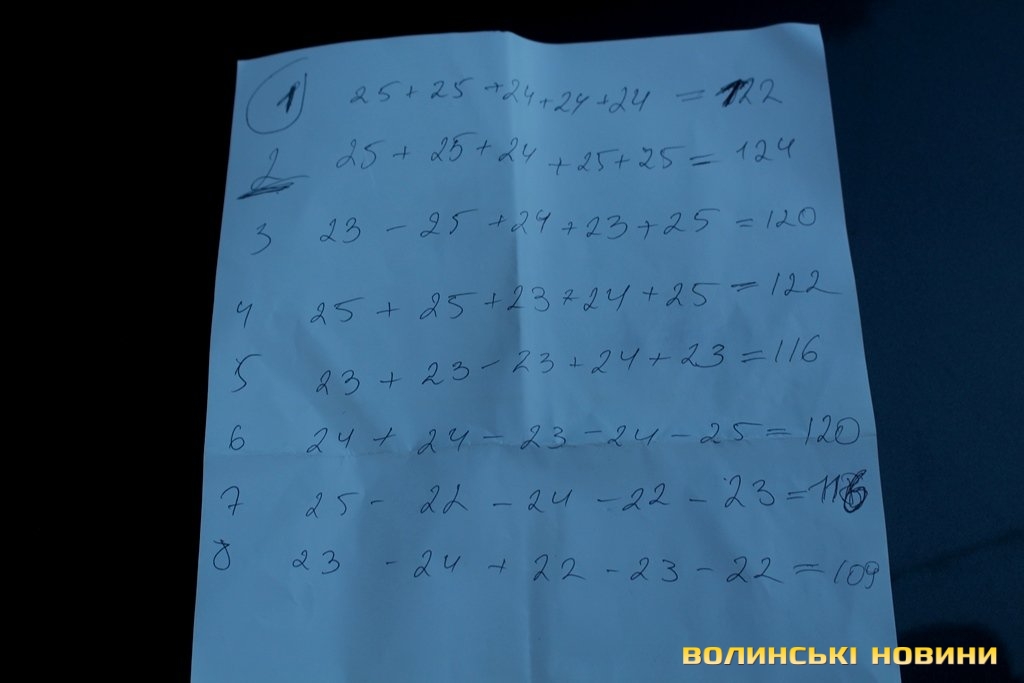 1 25 + 25 + 24 + 24 + 24 = 122
2 25 + 25 + 24 + 25 + 25 = 124
3 23 - 25 + 24 + 23 + 25 = 120
4 25 + 25 + 23 + 24 + 25 = 122
5 23 + 23 - 23 + 24 + 23 = 116
6 24 + 24 - 23 - 24 - 25 = 120
7 25 - 22 - 24 - 22 - 23 = 116
8 23 - 24 + 22 - 23 - 22 = 109
ВОЛИНСЬКІ НОВИНИ